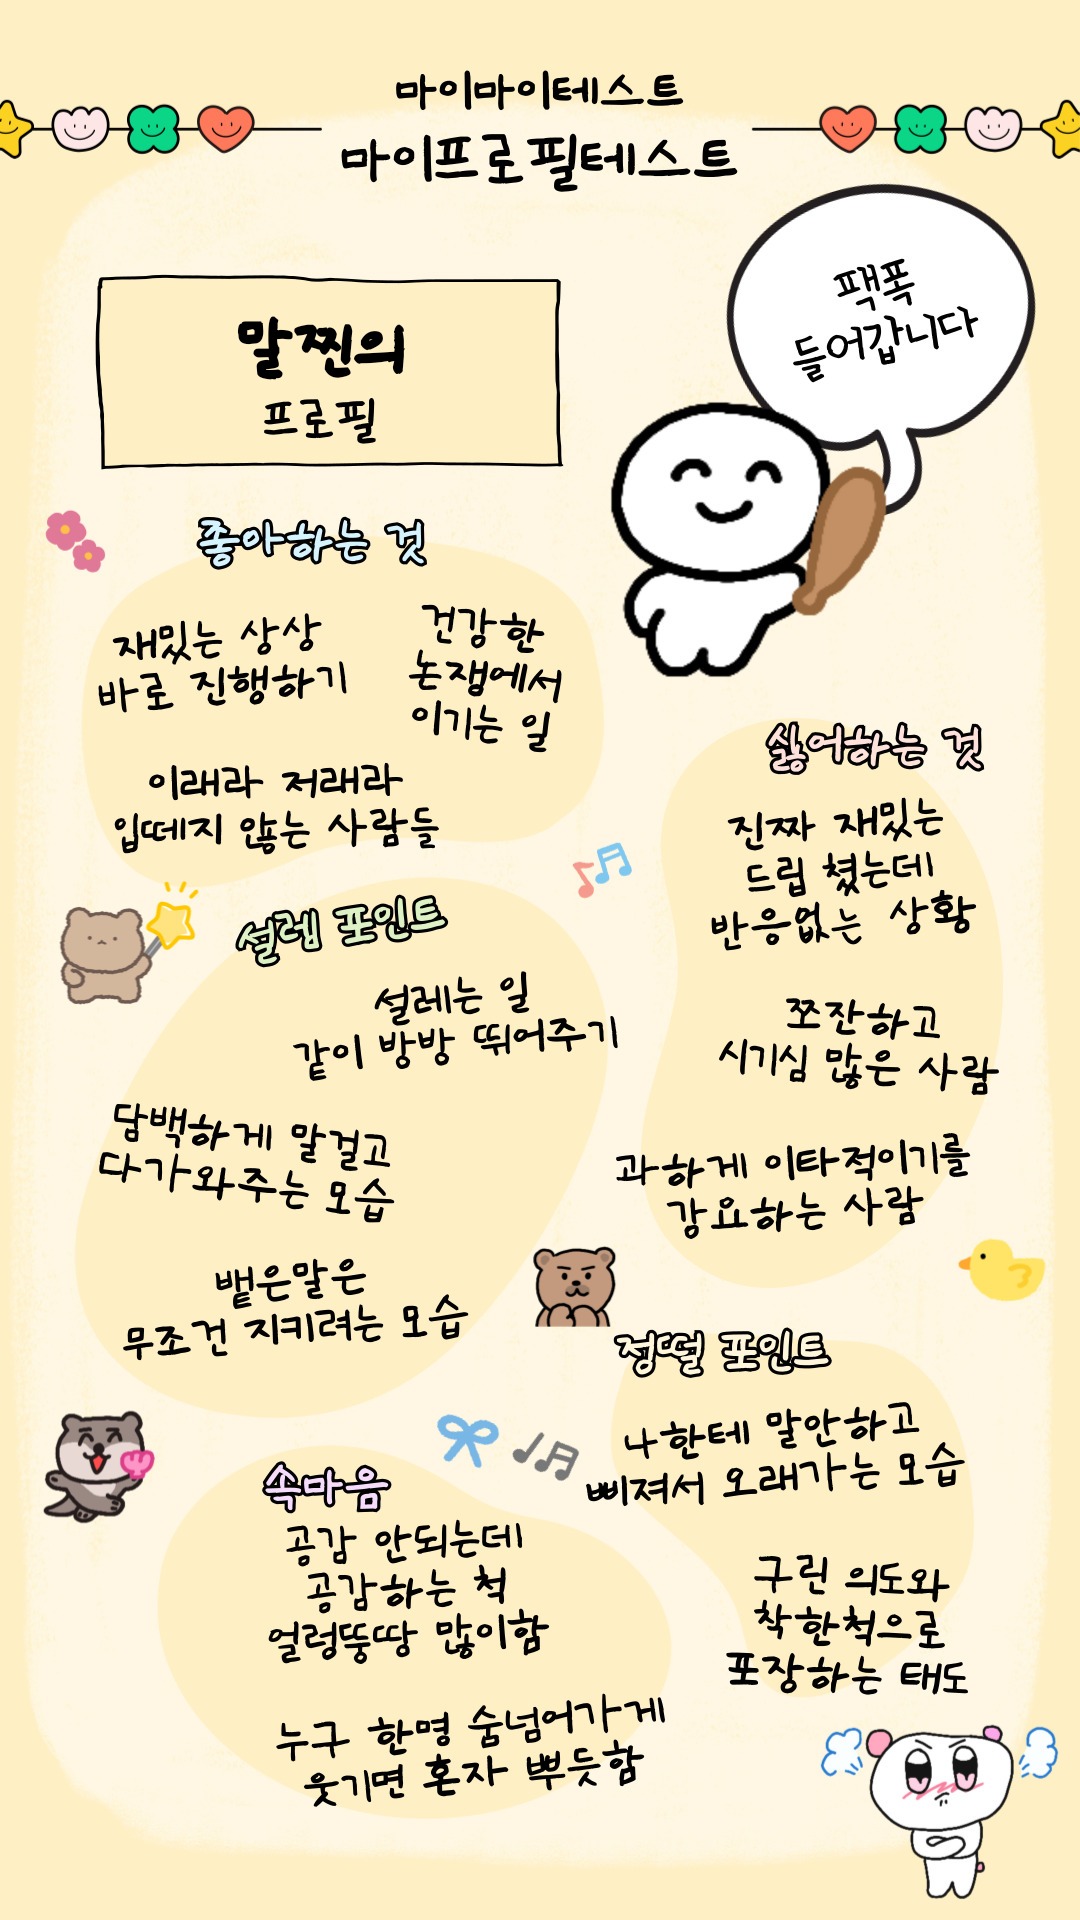 마이마이테스트
마이프로필테스트
팩폭
들어갑니다
말찐의
프로필
좋아하는 것
재밌는 상상
바로 진행하기
건강한
논쟁에서
이기는 일
이래라 저래라
입떼지 않는 사람들
싫어하는 것
진짜 재밌는
드립 쳤는데
반응없는 상황
쪼잔하고
시기심 많은 사람
과하게 이타적이기를
강요하는 사람
설렘 포인트
설레는 일
같이 방방 뛰어주기
담백하게 말걸고
다가와주는 모습
뱉은말은
무조건 지키려는 모습
정떨 포인트
나한테 말안하고
삐져서 오래가는 모습
구린 의도와
착한척으로
포장하는 태도
속마음
공감 안되는데
공감하는 척
얼렁뚱땅 많이함
누구 한명 숨넘어가게
웃기면 혼자 뿌듯함